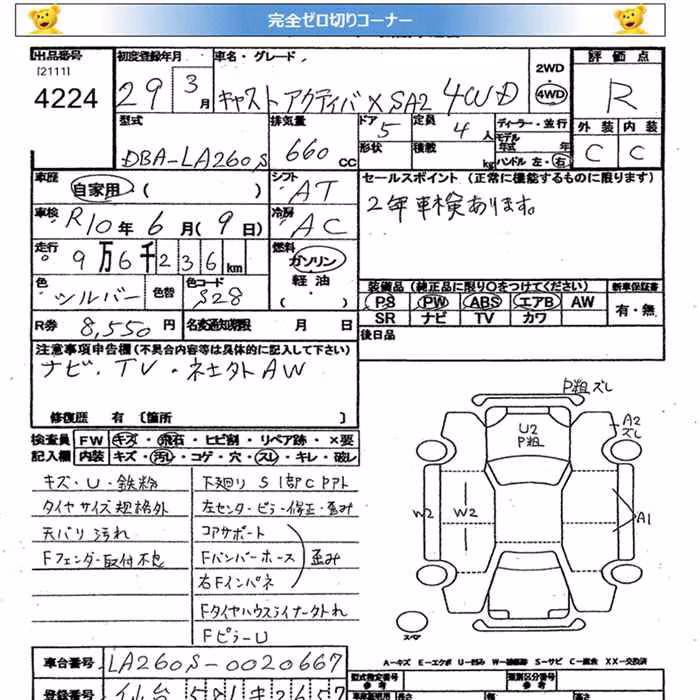 完全ゼロ切りコーナー
出品番号
[2111]
4224
初度登録年月
29 3月
車名・グレード
キャスト アクティバ X SA2 4WD
2WD
4WD
評価点
R
外装 内装
C C
型式
DBA-LA260S
排気量
660 CC
ドア 5
形状
定員 4人
積載 kg
ディーラー・並行
モデル年式 年
ハンドル 左・右
車歴
自家用 ( )
シフト AT
車検 R10年6月(9日)
冷房 AC
セールスポイント (正常に機能するものに限ります)
2年車検あります。
走行 9万6千236km
燃料
ガソリン
軽油
( )
色 シルバー 色替
色コード S28
装備品 (純正品に限り○をつけてください)
新車保証書
PS PW ABS エアB AW
SR ナビ TV カワ
有・無
R券 8,550円
名変通知期限 月 日
後日品
注意事項申告欄 (不具合内容等は具体的に記入して下さい)
ナビ・TV・ネ土外AW
修復歴 有 〔箇所 〕
検査員 FW キズ・飛石・ヒビ割・リペア跡・×要
記入欄 内装 キズ・汚レ・コゲ・穴・スレ・キレ・破レ
キズ・U・鉄粉
タイヤサイズ規格外
天バリ汚れ
Fフェンダー取付不良
下廻リ S 1部CPアト
左センターピラー修正・歪み
コアサポート
Fバンパーホース 歪み
右Fインパネ
Fタイヤハウスライナー外れ
FピラーU
P粗 ズレ
U2
P粗
A2
ズレ
W2
W2
A1
スペア
A-キズ E-エクボ U-凹み W-補修跡 S-サビ C-腐食 XX-交換済
車台番号 LA260S-0020667
登録番号 仙台 581
型式指定番号
類別区分番号